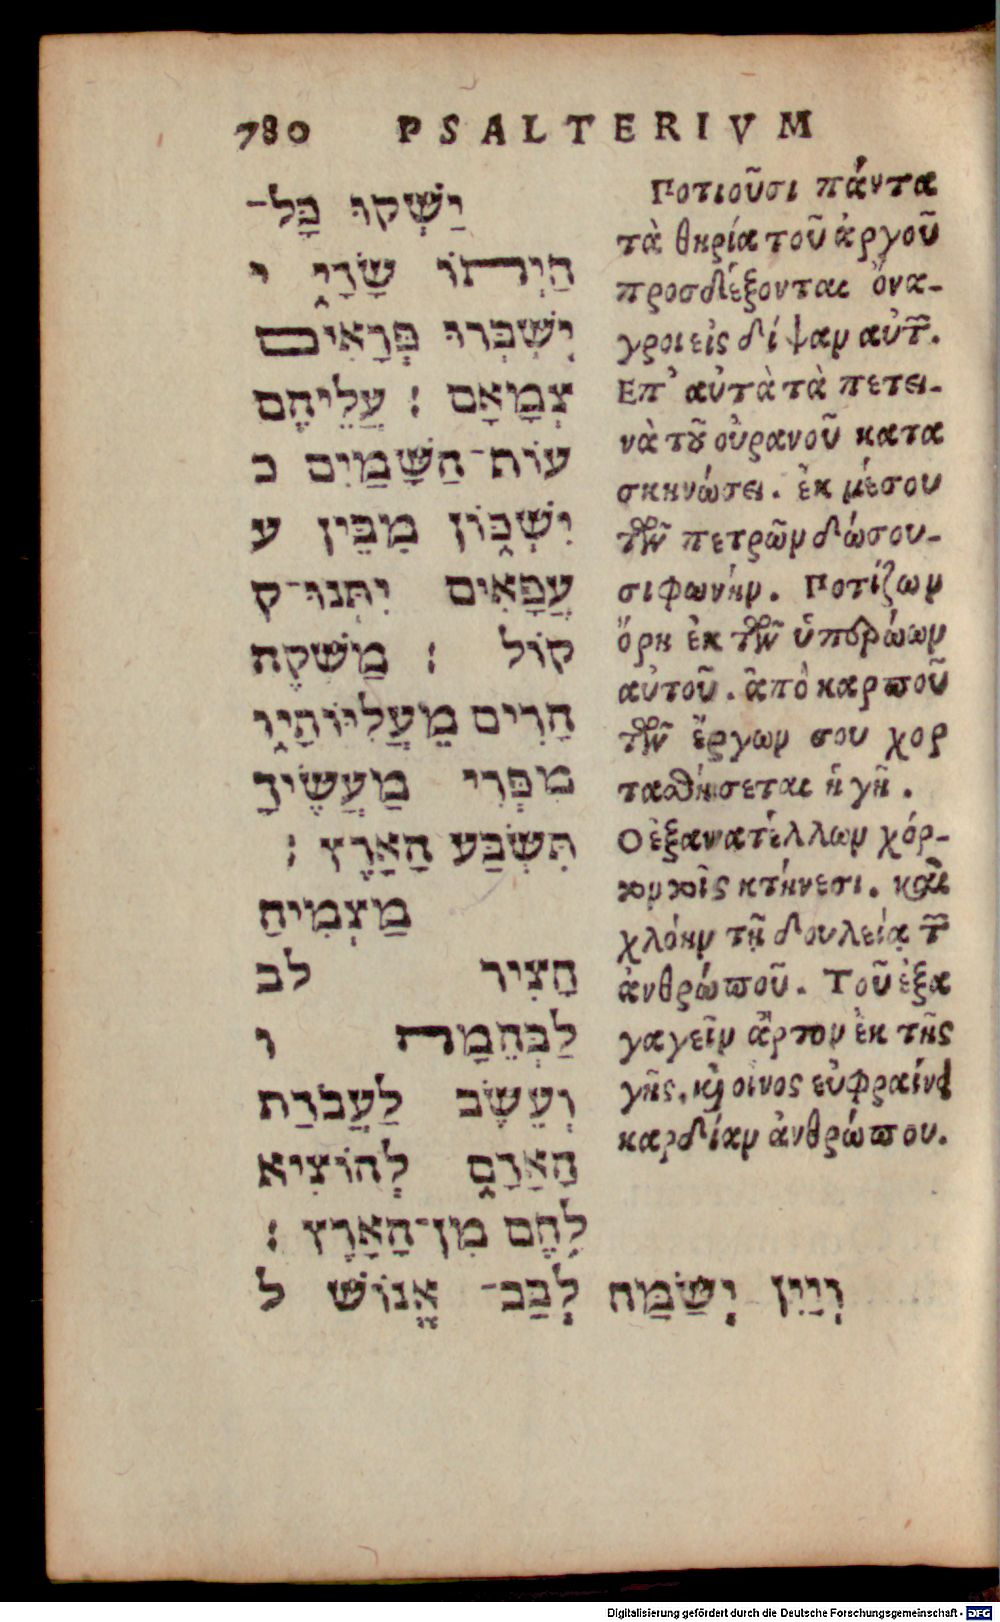 780 PSALTERIVM
יַשְׁקוּ כָּל־
חַיְתוֹ שָׂרָי י
יִשְׁבְּרוּ פְרָאִים
צְמָאָם : עֲלֵיהֶם
עוֹת־הַשָּׁמַיִם כ
יִשְׁכּוֹן מִבֵּין ע
עֳפָאיִם יִתְּנוּ־ק
קוֹל : מַשְׁקֶה
הָרִים מֵעֲלִיּוֹתָיו
מִפְּרִי מַעֲשֶׂיךָ
תִּשְׂבַּע הָאָרֶץ :
מַצְמִיחַ
חָצִיר לב
לַבְּהֵמָה ו
וְעֵשֶׂב לַעֲבֹדַת
הָאָדָם לְהוֹצִיא
לֶחֶם מִן־הָאָרֶץ :
וְיַיִן יְשַׂמַּח לְבַב־ אֱנוֹשׁ ל
Ποτιοῦσι πάντα
τὰ θηρία τοῦ ἀργοῦ
προσδέξονται ὄνα-
γροι εἰς δίψαν αὐτῶ.
Επ' αὐτὰ τὰ πετει-
νὰ τοῦ οὐρανοῦ κατα
σκηνώσει. ἐκ μέσου
τῶν πετρῶν δώσου-
σι φωνήν. Ποτίζων
ὄρη ἐκ τῶν ὑπερώων
αὐτοῦ. ἀπὸ καρποῦ
τῶν ἔργων σου χορ
ταθήσεται ἡ γῆ.
Ο ἐξανατέλλων χόρ-
τον τοῖς κτήνεσι. καὶ
χλόην τῇ δουλείᾳ τῶ
ἀνθρώπου. Τοῦ ἐξα
γαγεῖν ἄρτον ἐκ τῆς
γῆς, καὶ οἶνος εὐφραίνει
καρδίαν ἀνθρώπου.
Digitalisierung gefördert durch die Deutsche Forschungsgemeinschaft - DFG